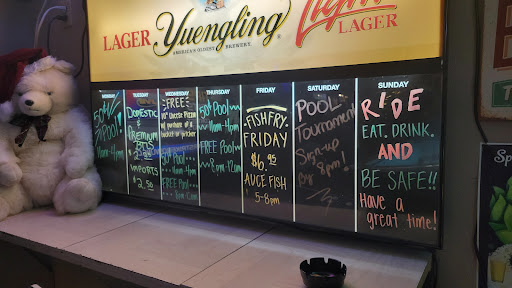 LAGER Yuengling Light LAGER
AMERICA'S OLDEST BREWERY.
MONDAY
50¢
Pool
10am-4pm
TUESDAY
DOMESTIC
$
PREMIUM
BTLS
2.25
IMPORTS
$2.50
WEDNESDAY
FREE
10" Cheese Pizza
w/ purchase of a
bucket or pitcher
50¢ Pool
10am-4pm
FREE Pool
THURSDAY
50¢ Pool
10am-4pm
FREE Pool
8pm-12am
FRIDAY
FISH FRY
FRIDAY
$6.95
AUCE FISH
5-8pm
SATURDAY
POOL
Tournament
Sign-up
By 8pm!
SUNDAY
RIDE
EAT. DRINK.
AND
BE SAFE!!
Have a
great time!
Sp